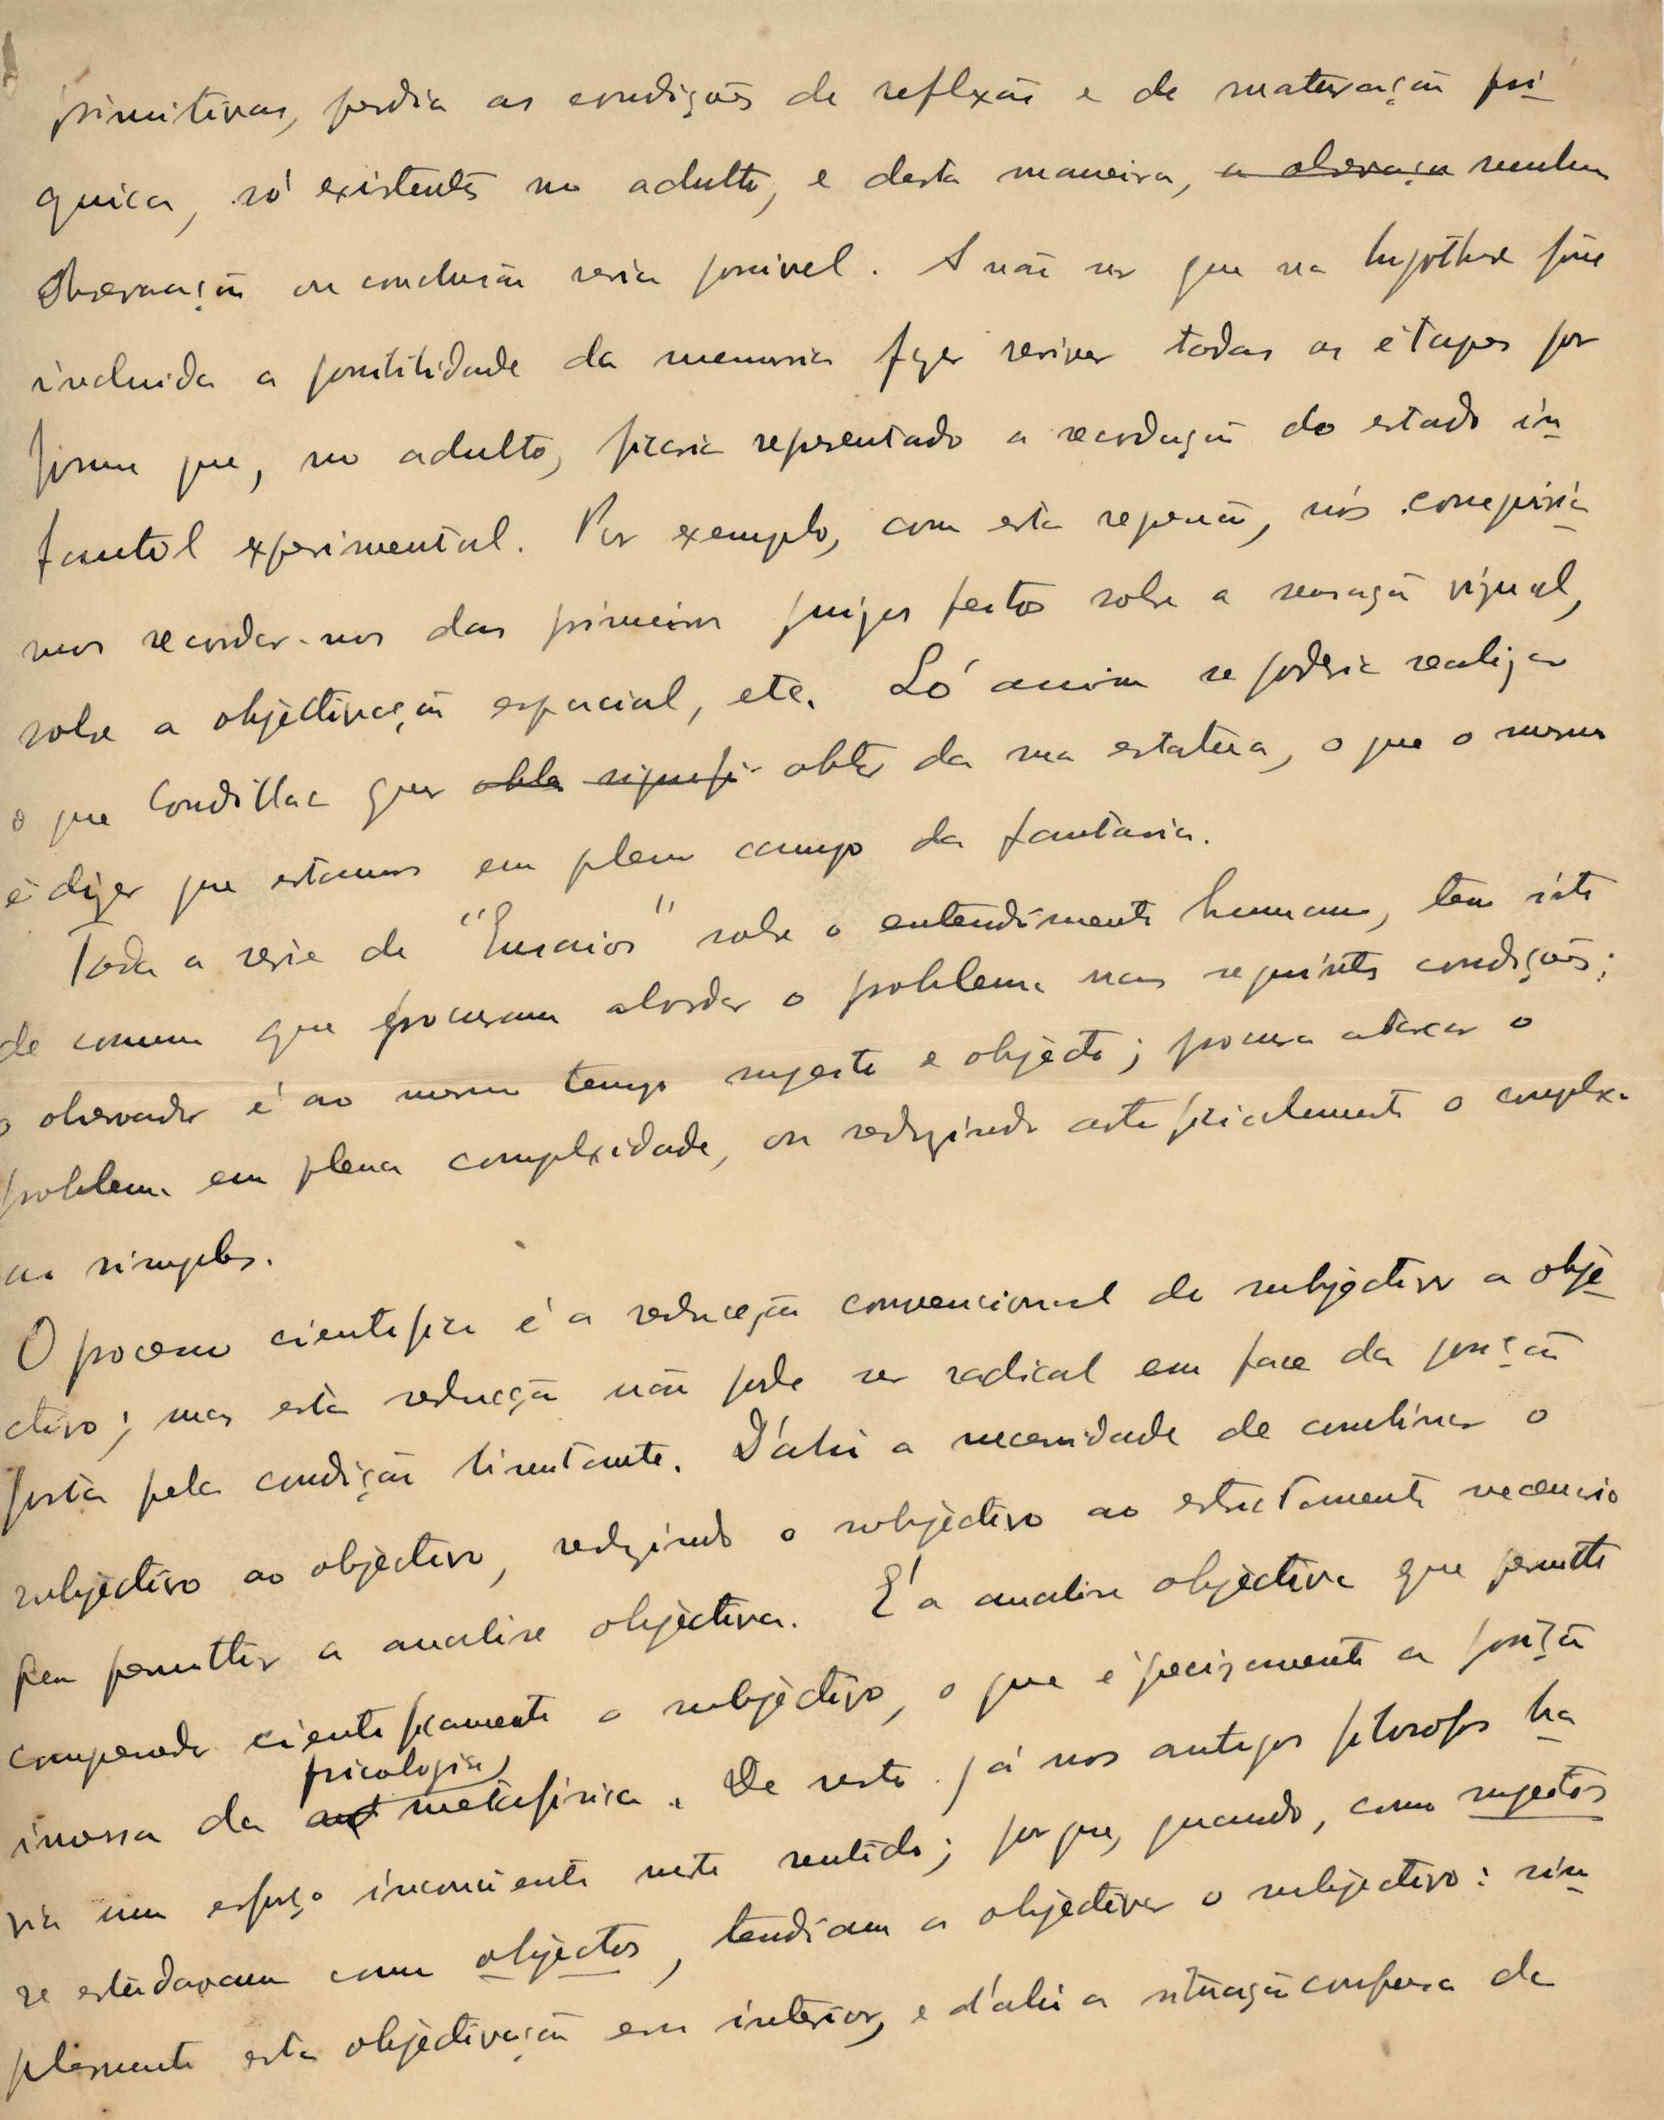 primitivas, perdia as condições de reflexão e de maturação psi-
quica, só existentes no adulto, e desta maneira, a observação nenhuma
observação ou conclusão seria possivel. A não ser que na hypothese fôsse
incluida a possibilidade da memoria fazer reviver todas as étapes por
forma que, no adulto, ficasse representado a recordação do estado in-
fantil experimental. Por exemplo, com esta repetição, nós conseguiria-
mos recordar-nos dos primeiros juizos feitos sobre a sensação visual,
sobre a objectivação espacial, etc. Só assim se poderia realizar
o que Condillac quer obte signifi- obter da sua estatua, o que o mesmo
é dizer que estamos em pleno campo da fantasia.
Toda a serie de "Ensaios" sobre o entendimento humano, tem isto
de comum que procuram abordar o problema nas seguintes condições:
o observador é ao mesmo tempo sujeito e objecto; procura atacar o
problema em plena complexidade, ou reduzindo artificialmente o complexo
ao simples.
O processo cientifico é a reducção convencional do subjectivo a obje-
ctivo; mas esta reducção não pode ser radical em face da posição
posta pela condição limitante. D'ahi a necessidade de combinar o
subjectivo ao objectivo, reduzindo o subjectivo ao estrictamente necessario
para permittir a analise objectiva. E' a analise objectiva que permitte
compreender cientificamente o subjectivo, o que é precizamente a posição
inversa da psicologia metafisica. De resto já nos antigos filosofos ha-
via um esforço inconsciente neste sentido; porque, quando, como sujeitos
se estudavam como objectos, tendiam a objectivar o subjectivo: sim-
plesmente esta objectivação era interior, e d'ahi a situação confusa de